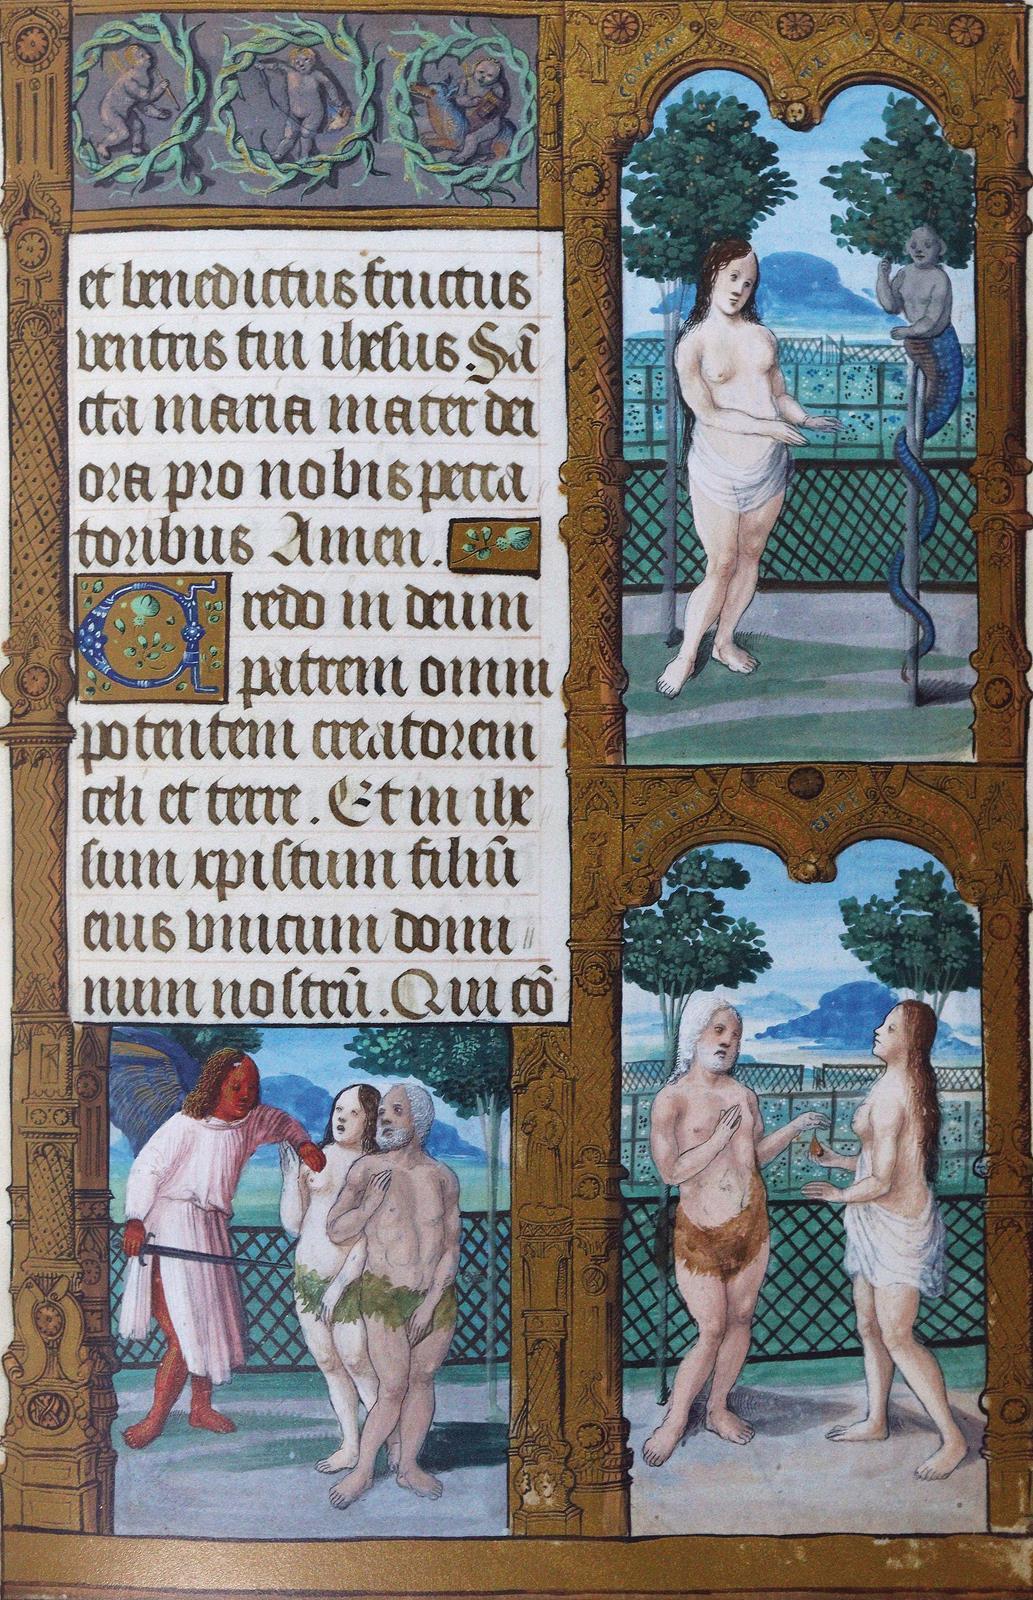 et benedictus fructus
ventris tui ihesus. Sā
cta maria mater dei
ora pro nobis pecca
toribus Amen.
Credo in deum
patrem omni
potentem creatorem
celi et terre. Et in ihe
sum xpistum filiū
eius vnicum domi
num nostrū. Qui cō